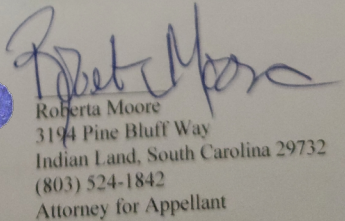 Roberta Moore
Roberta Moore
3194 Pine Bluff Way
Indian Land, South Carolina 29732
(803) 524-1842
Attorney for Appellant